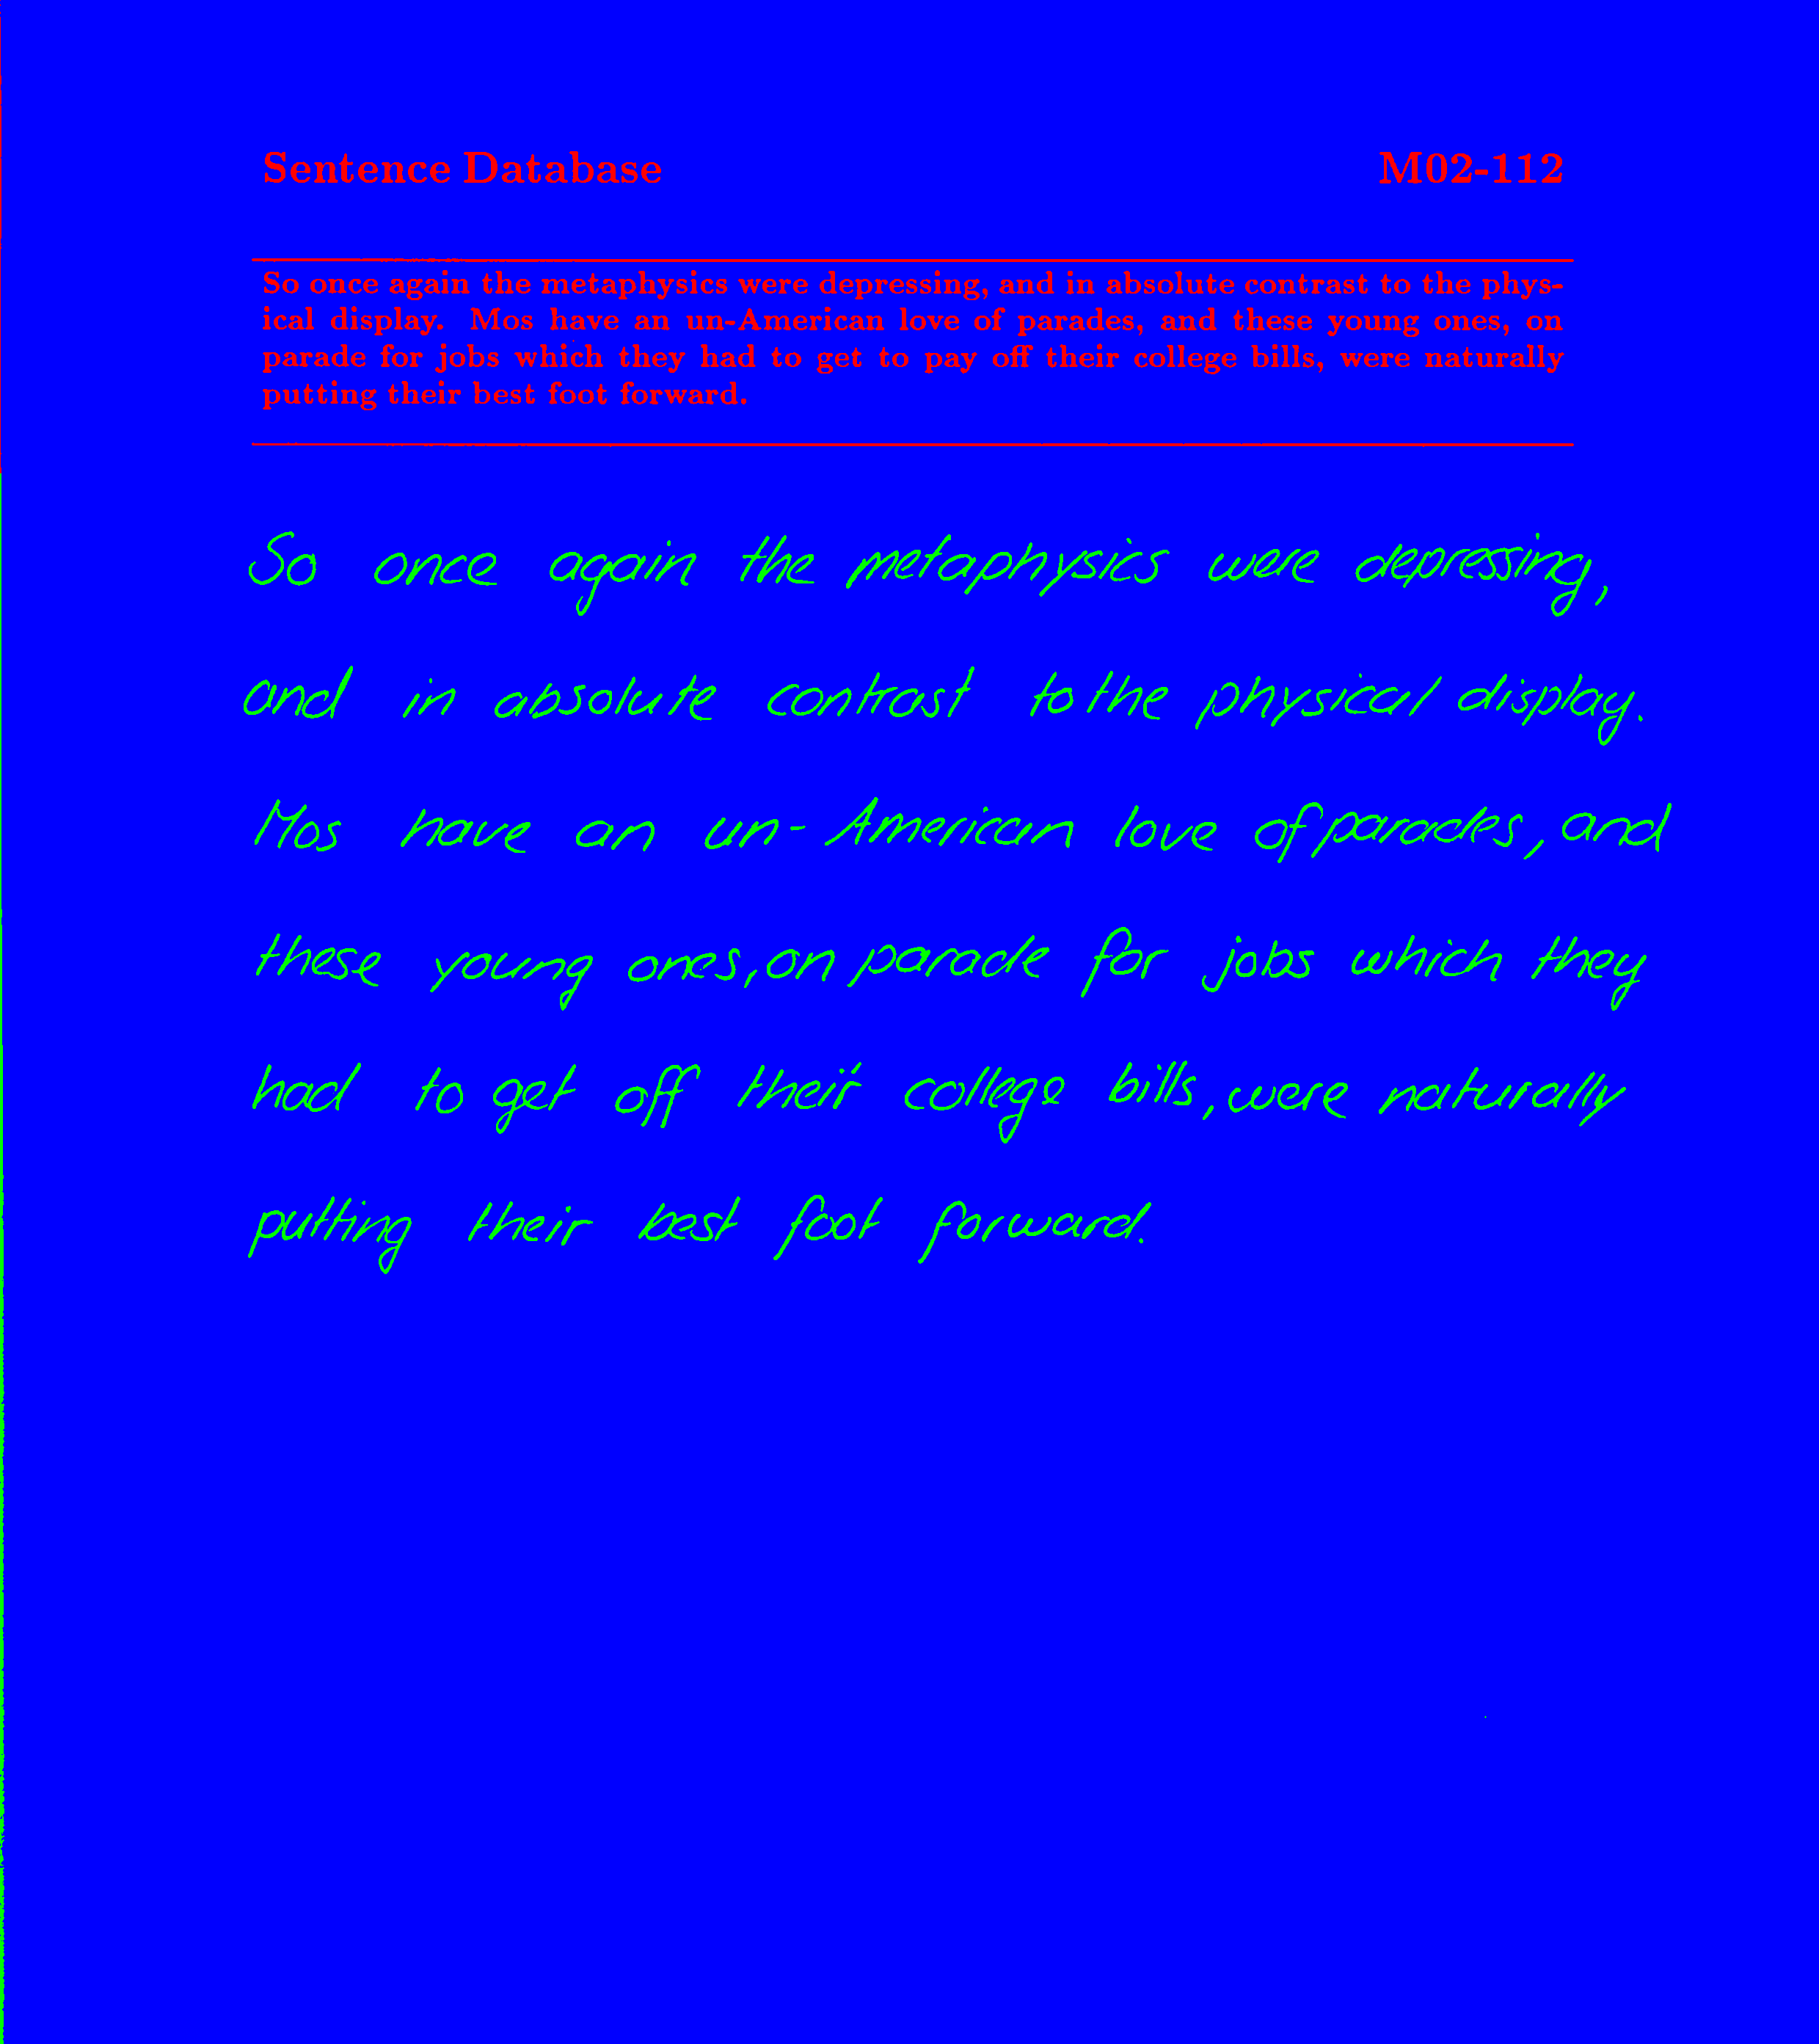 Sentence Database M02-112
So once again the metaphysics were depressing, and in absolute contrast to the phys-
ical display. Mos have an un-American love of parades, and these young ones, on
parade for jobs which they had to get to pay off their college bills, were naturally
putting their best foot forward.
So once again the metaphysics were depressing,
and in absolute contrast to the physical display.
Mos have an un-American love of parades, and
these young ones, on parade for jobs which they
had to get off their college bills, were naturally
putting their best foot forward.